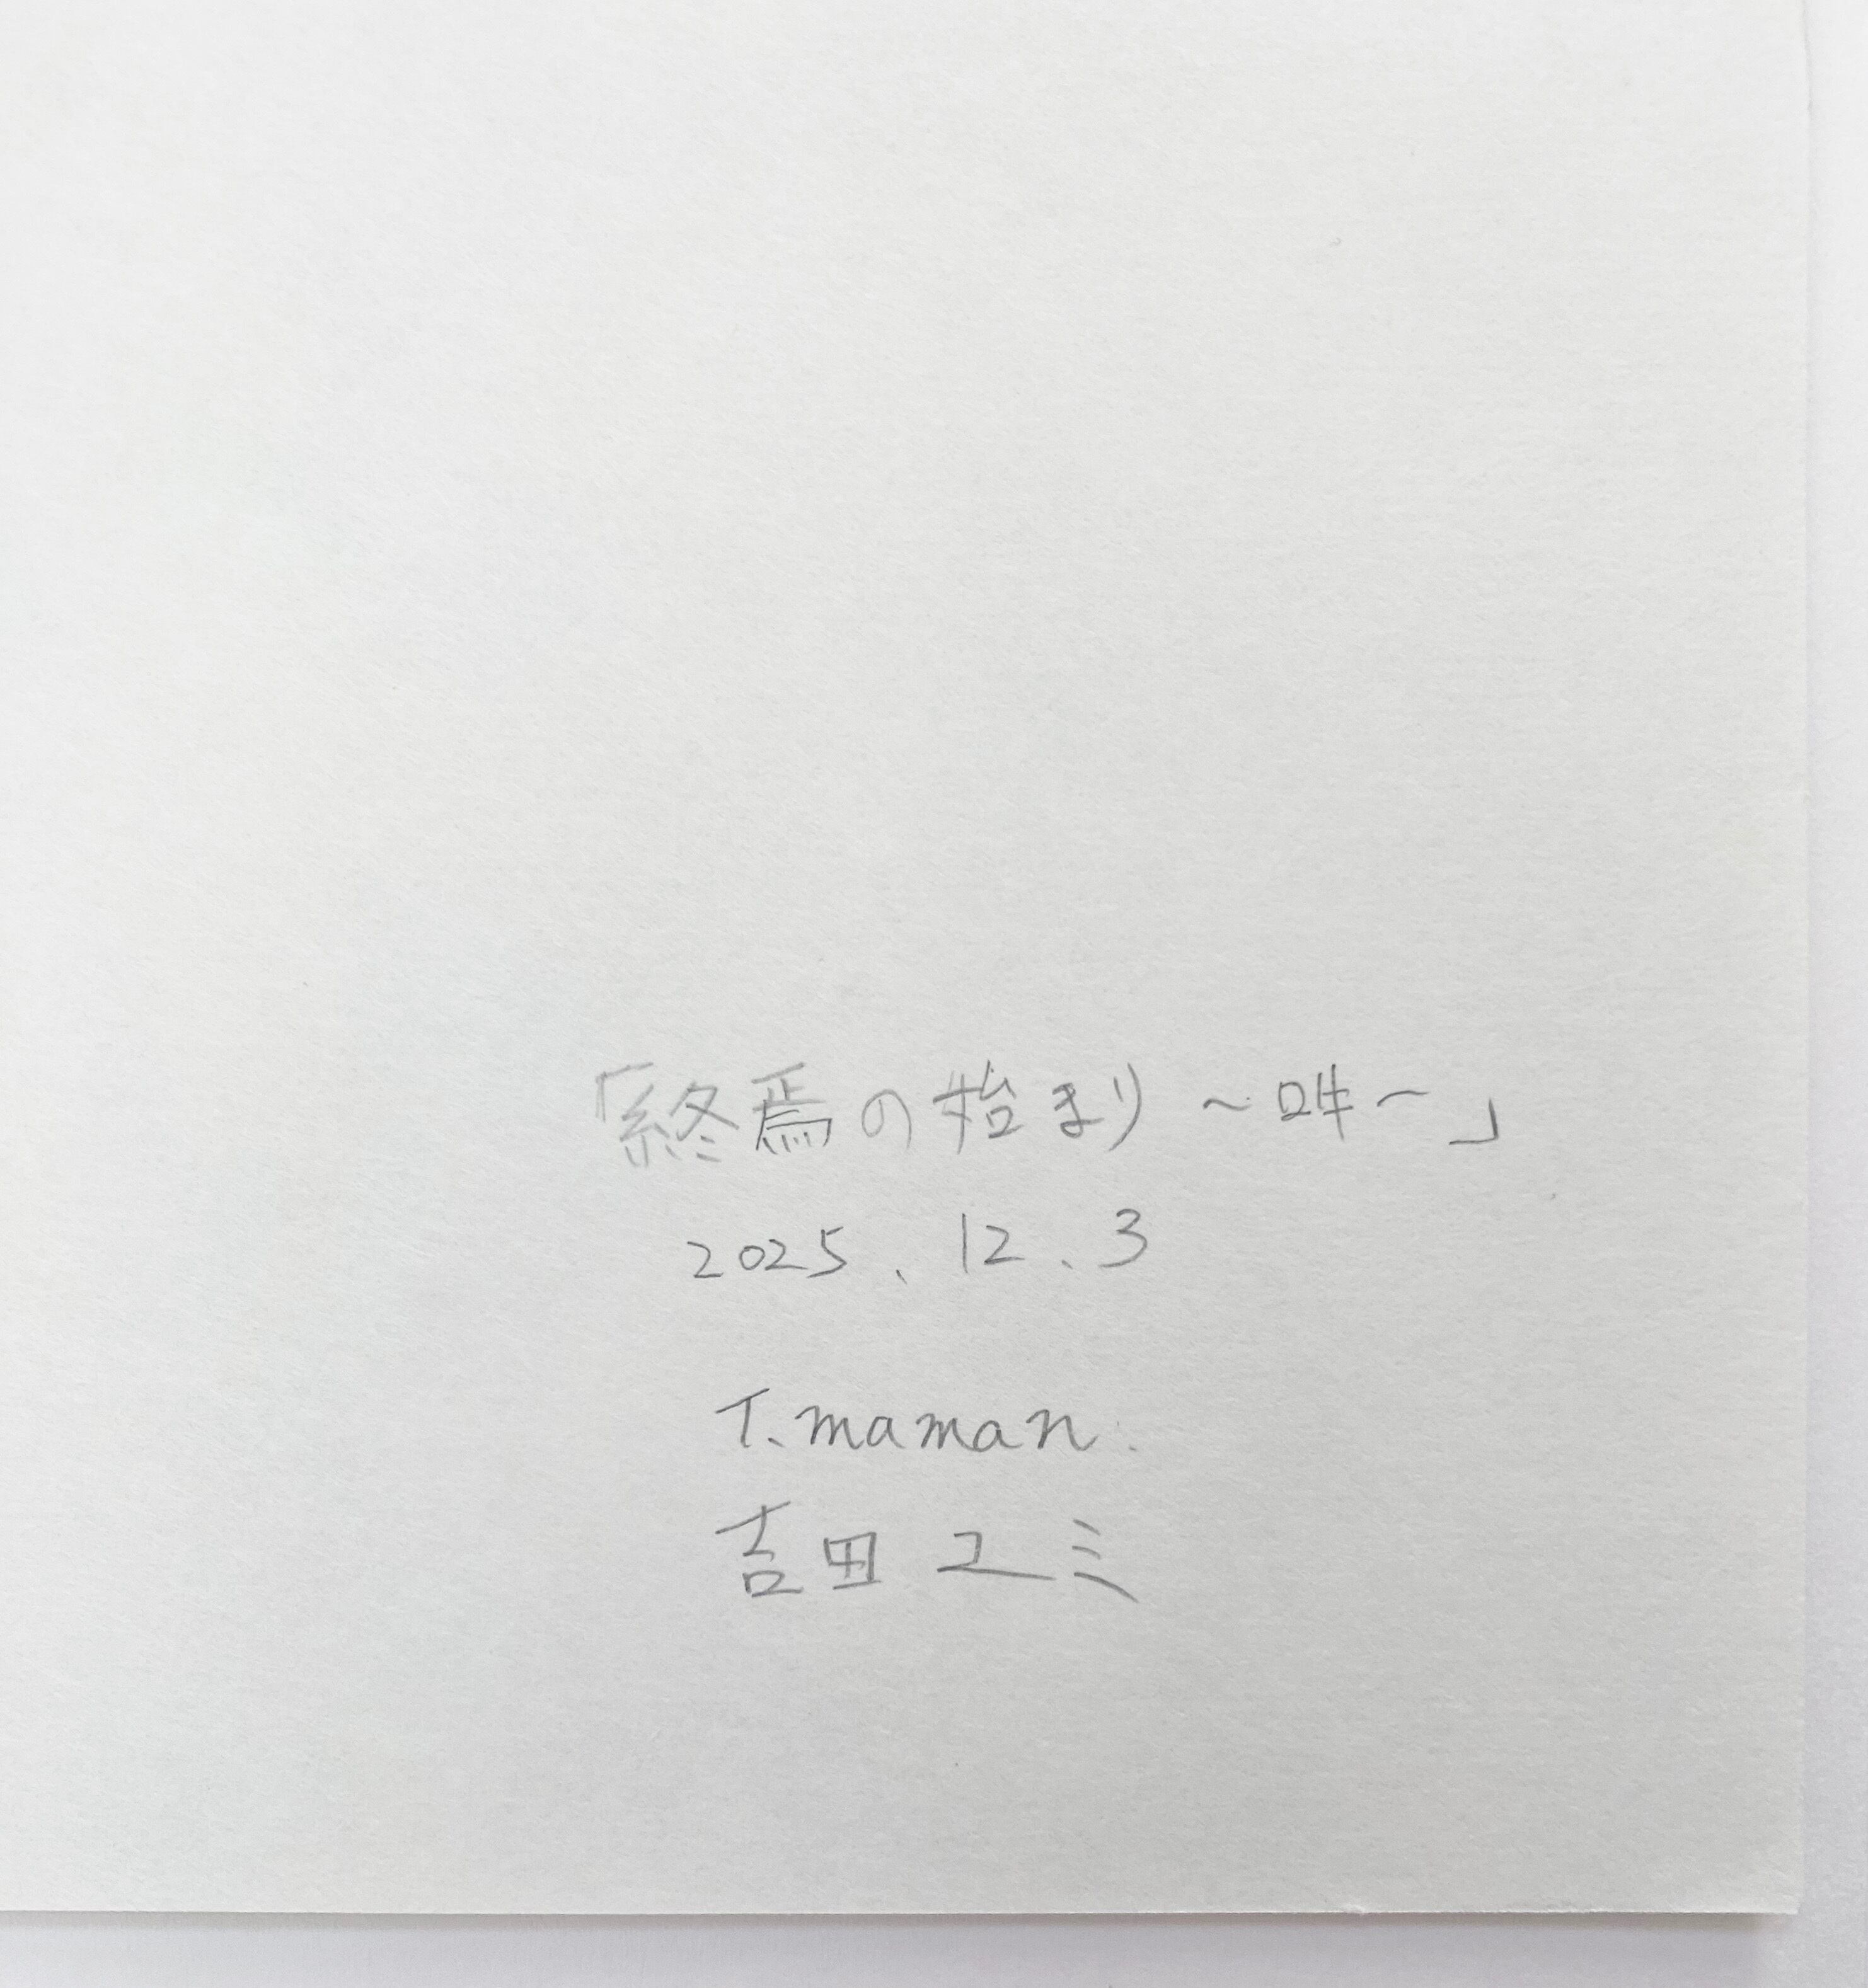 「終焉の始まり 〜叫〜」
2025、12、3
T.maman.
吉田ユミ